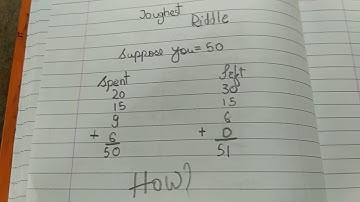 Toughest Riddle
Suppose You = 50
Spent Left
20 30
15 15
9 6
+ 6 + 0
50 51
How?